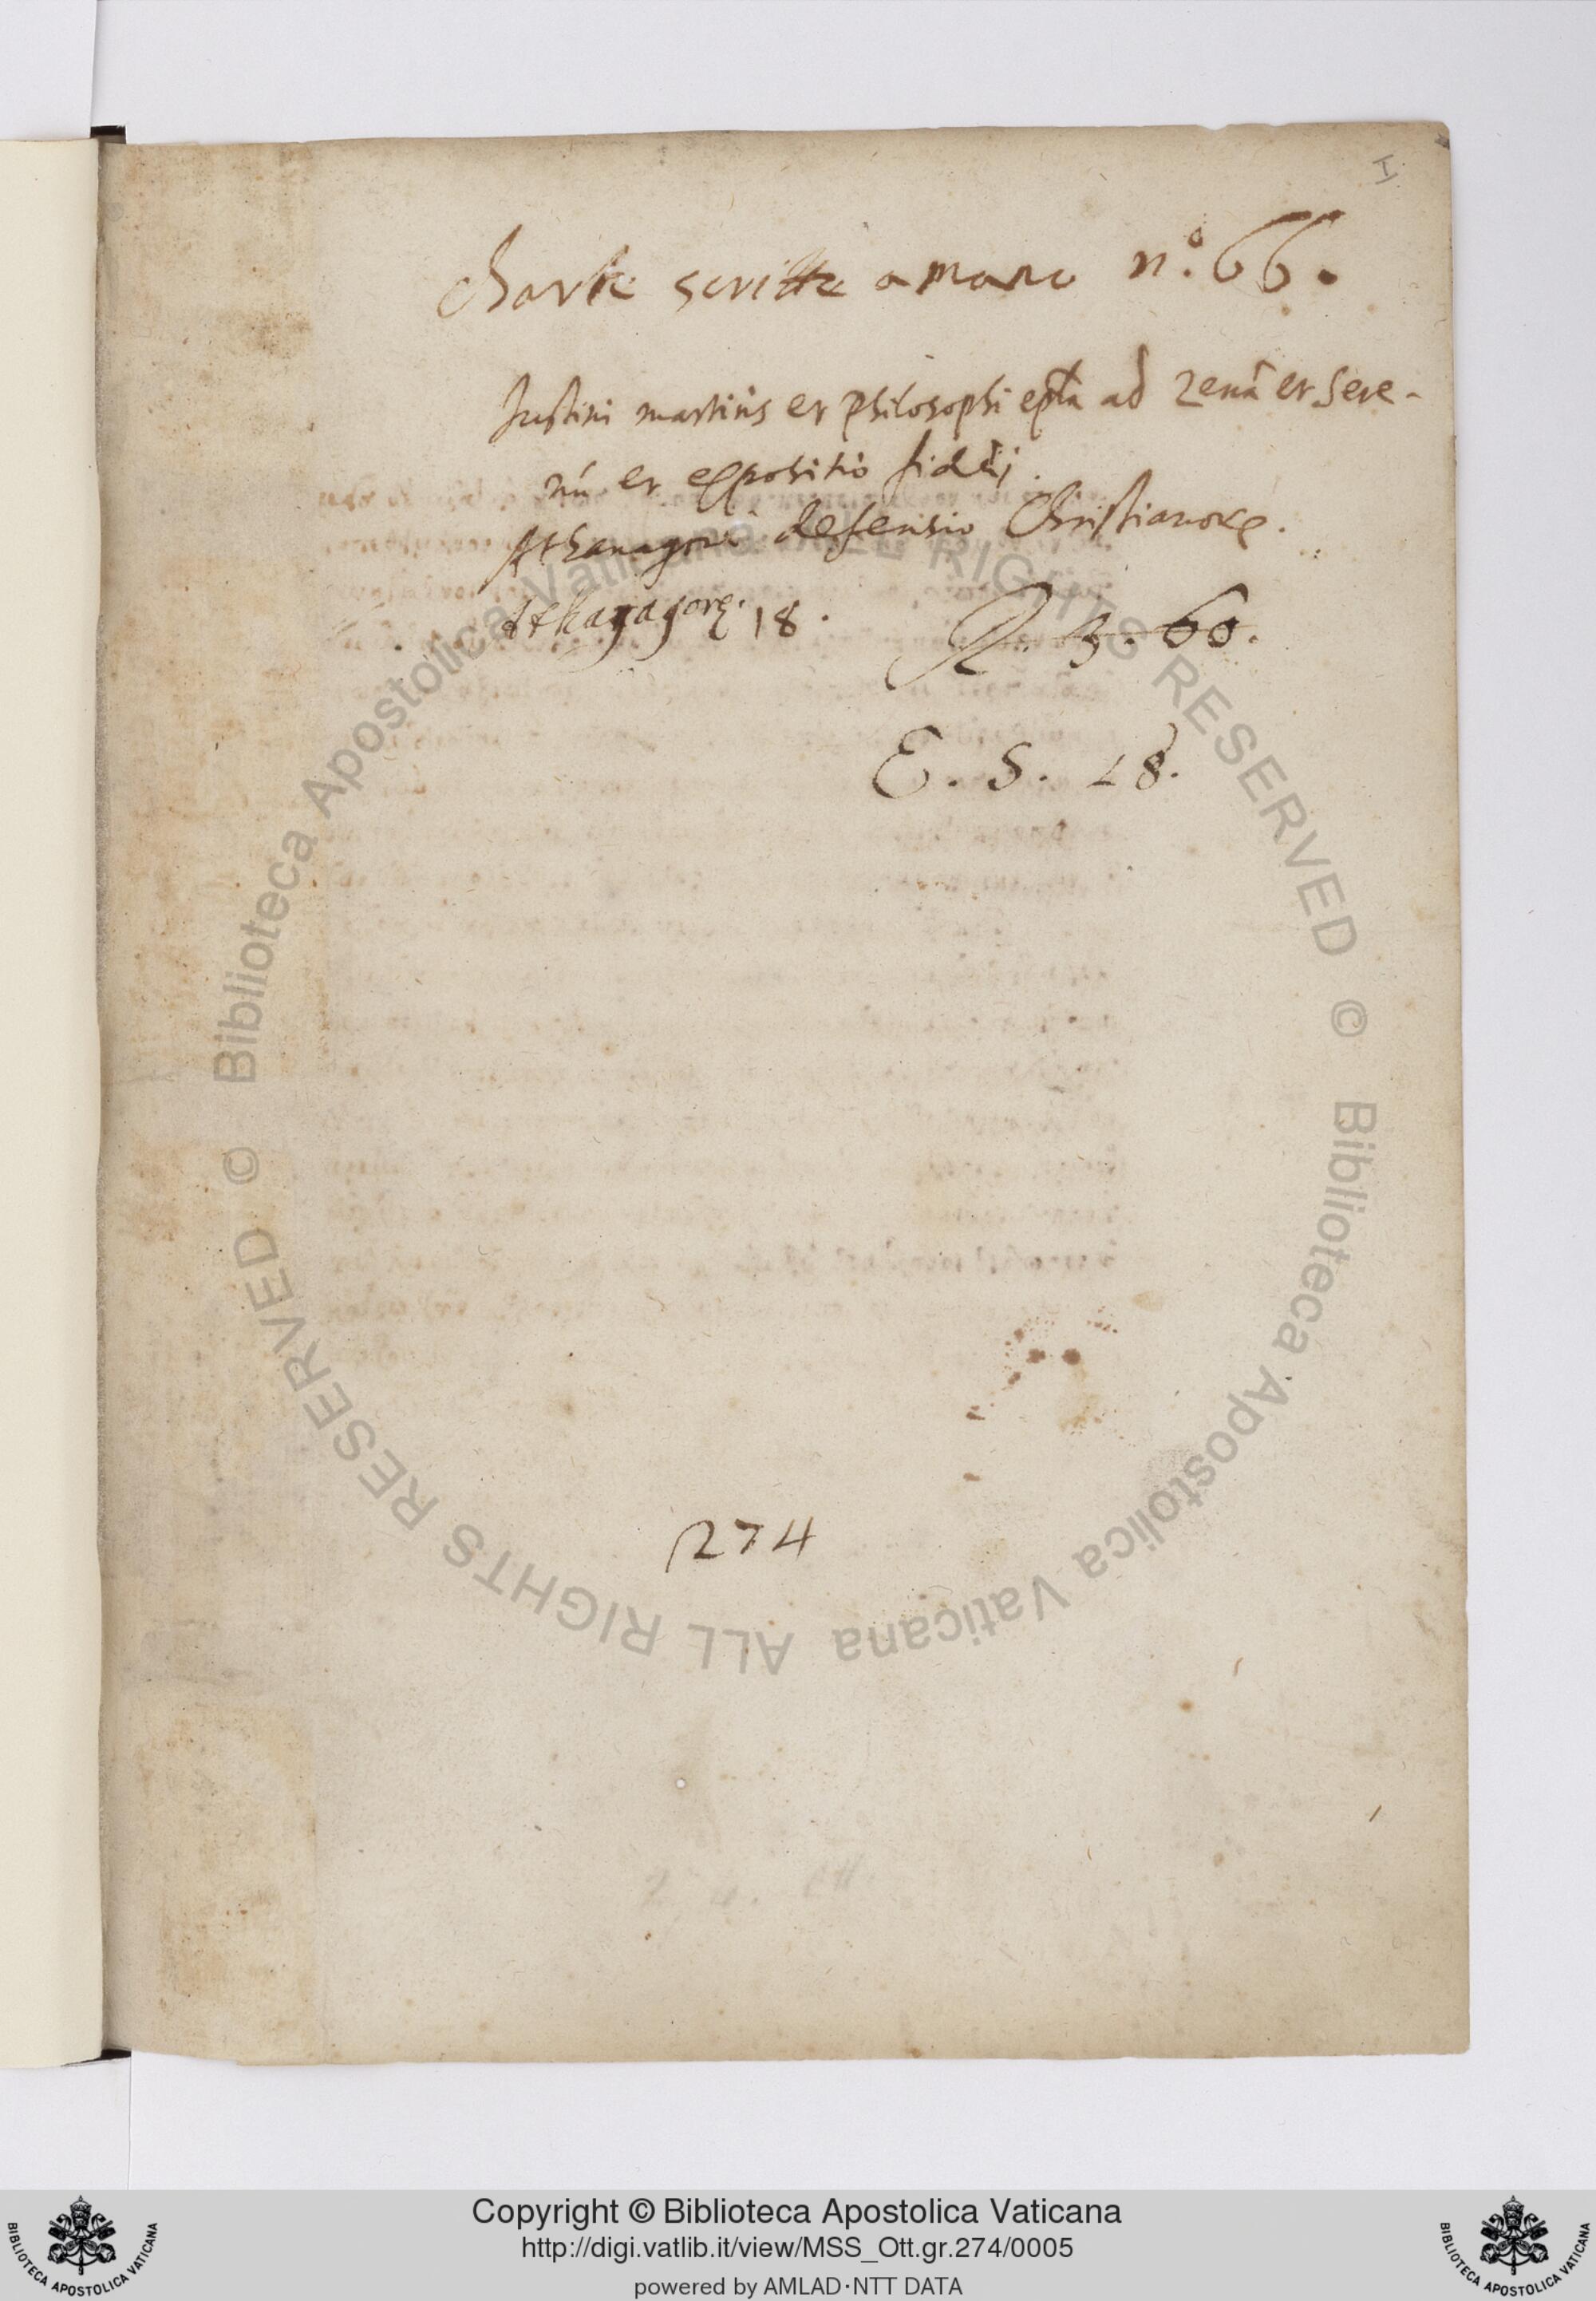 I
Charte scritte a mano n.º 66.
Justini martiris et Philosophi epl̃a ad Zenã et Sere-
nũ et expositio fidei.
Athanagorȩ defensio Christianorꝝ.
Athagagorȩ. 18.
R. 3. 60.
E. S. 28.
274
© Biblioteca Apostolica Vaticana ALL RIGHTS RESERVED © Biblioteca Apostolica Vaticana ALL RIGHTS RESERVED
Copyright © Biblioteca Apostolica Vaticana
http://digi.vatlib.it/view/MSS_Ott.gr.274/0005
powered by AMLAD·NTT DATA
BIBLIOTECA APOSTOLICA VATICANA
BIBLIOTECA APOSTOLICA VATICANA